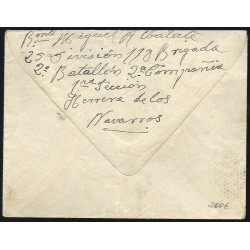 Rmte Miguel Albalate
25 División 118 Brigada
2º Batallón 2ª Compañia
1ª Sección
Herrera de los
Navarros
300€